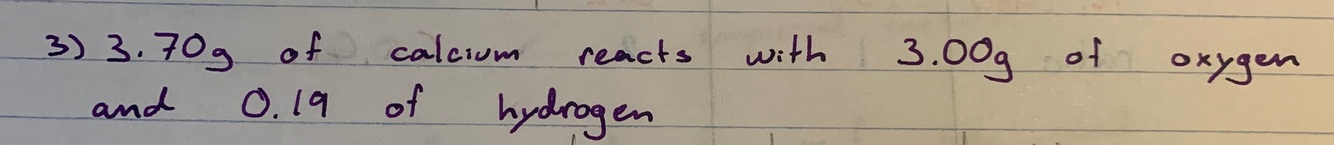 3) 3.70g of calcium reacts with 3.00g of oxygen
and 0.19 of hydrogen